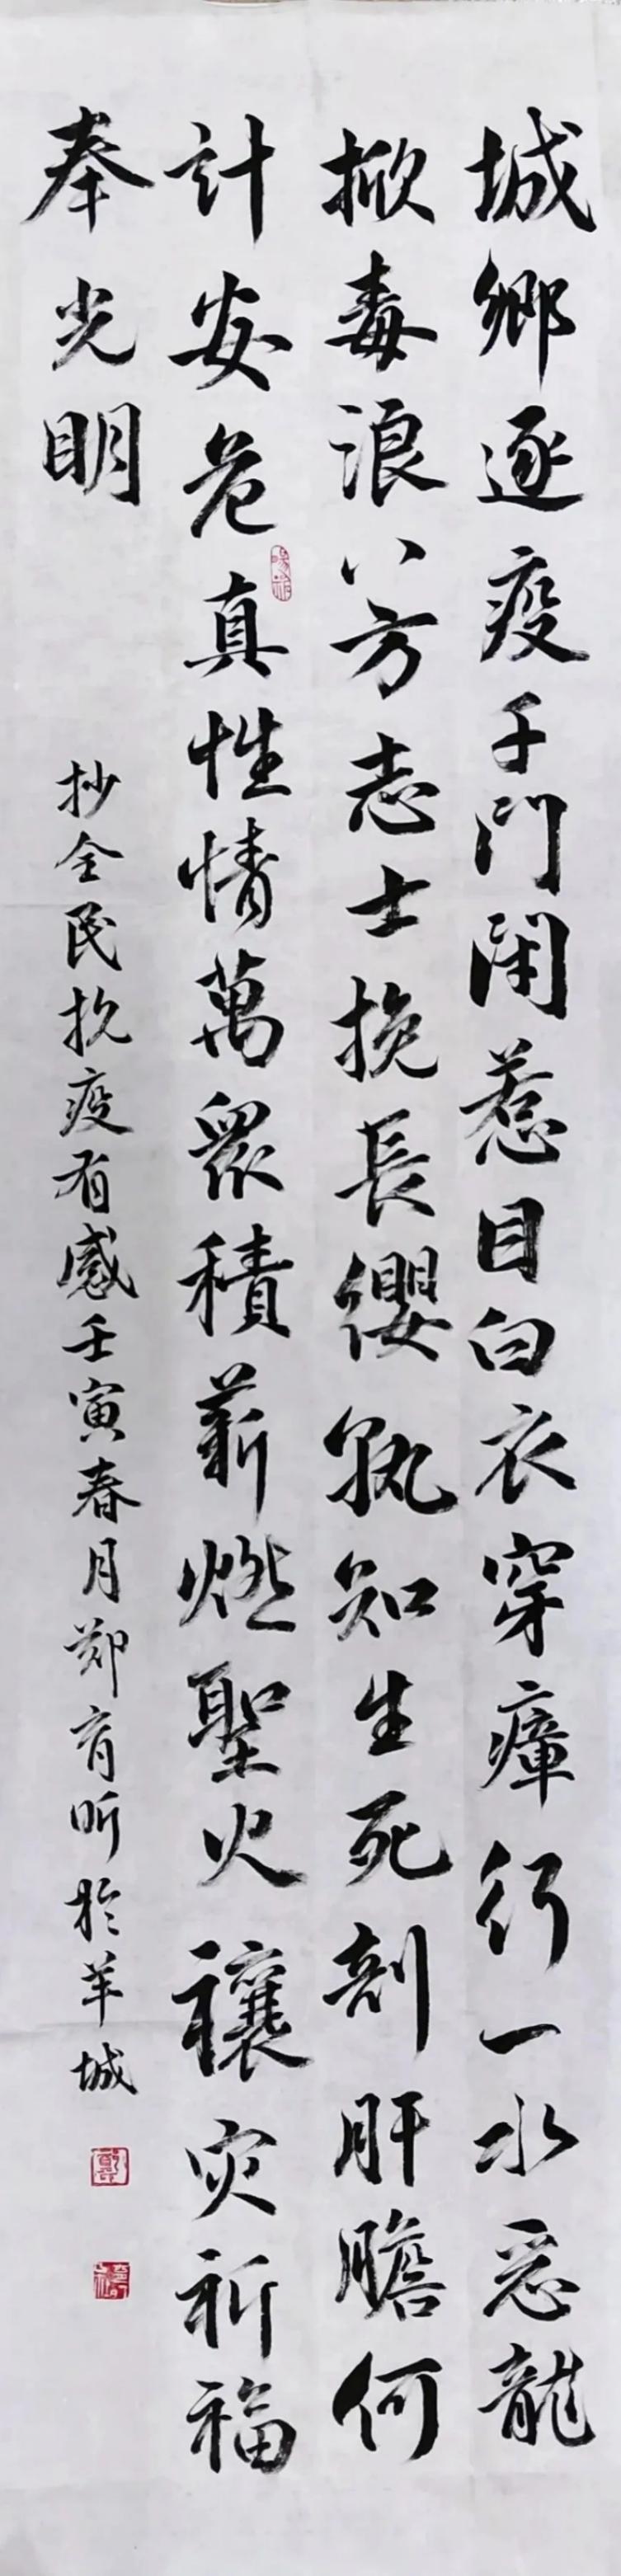 城鄉逐疫千門閉惹目白衣穿瘴行一水惡龍
掀毒浪八方志士挽長纓孰知生死剖肝膽何
計安危真性情萬眾積薪燃聖火禳灾祈福
奉光明
抄全民抗疫有感壬寅春月郑育昕於羊城